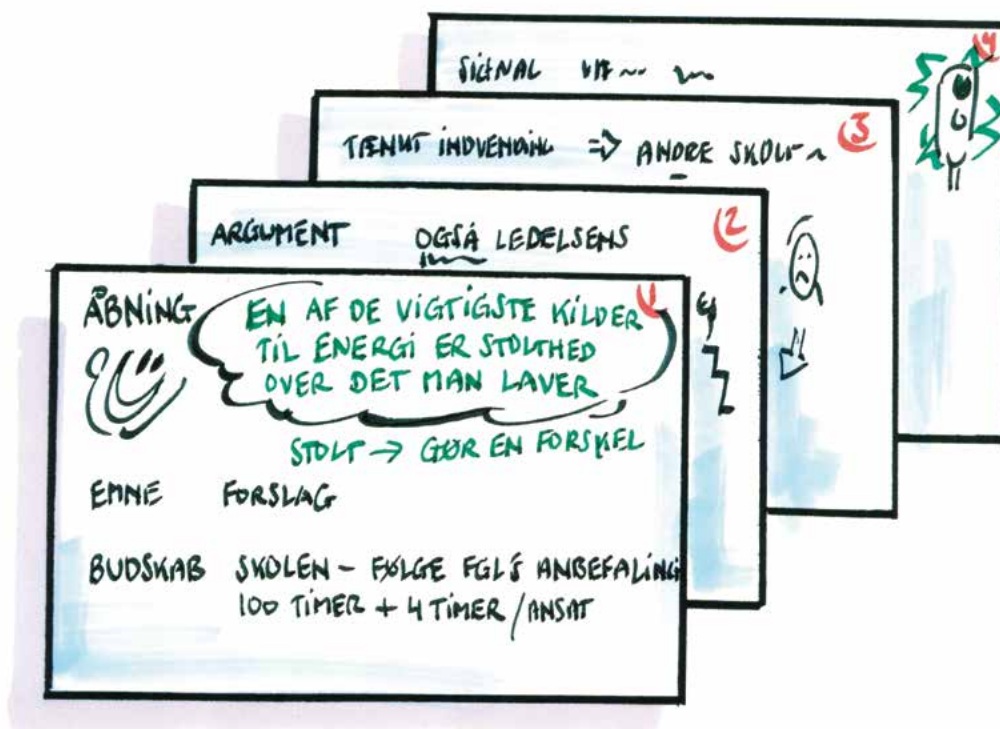 4
SIGNAL
3
TÆNKT INDVENDING => ANDRE
2
ARGUMENT OGSÅ LEDELSENS
1
ÅBNING EN AF DE VIGTIGSTE KILDER
TIL ENERGI ER STOLTHED
OVER DET MAN LAVER
STOLT → GØR EN FORSKEL
EMNE FORSLAG
BUDSKAB SKOLEN – FØLGE FGL'S ANBEFALING
100 TIMER + 4 TIMER / ANSAT